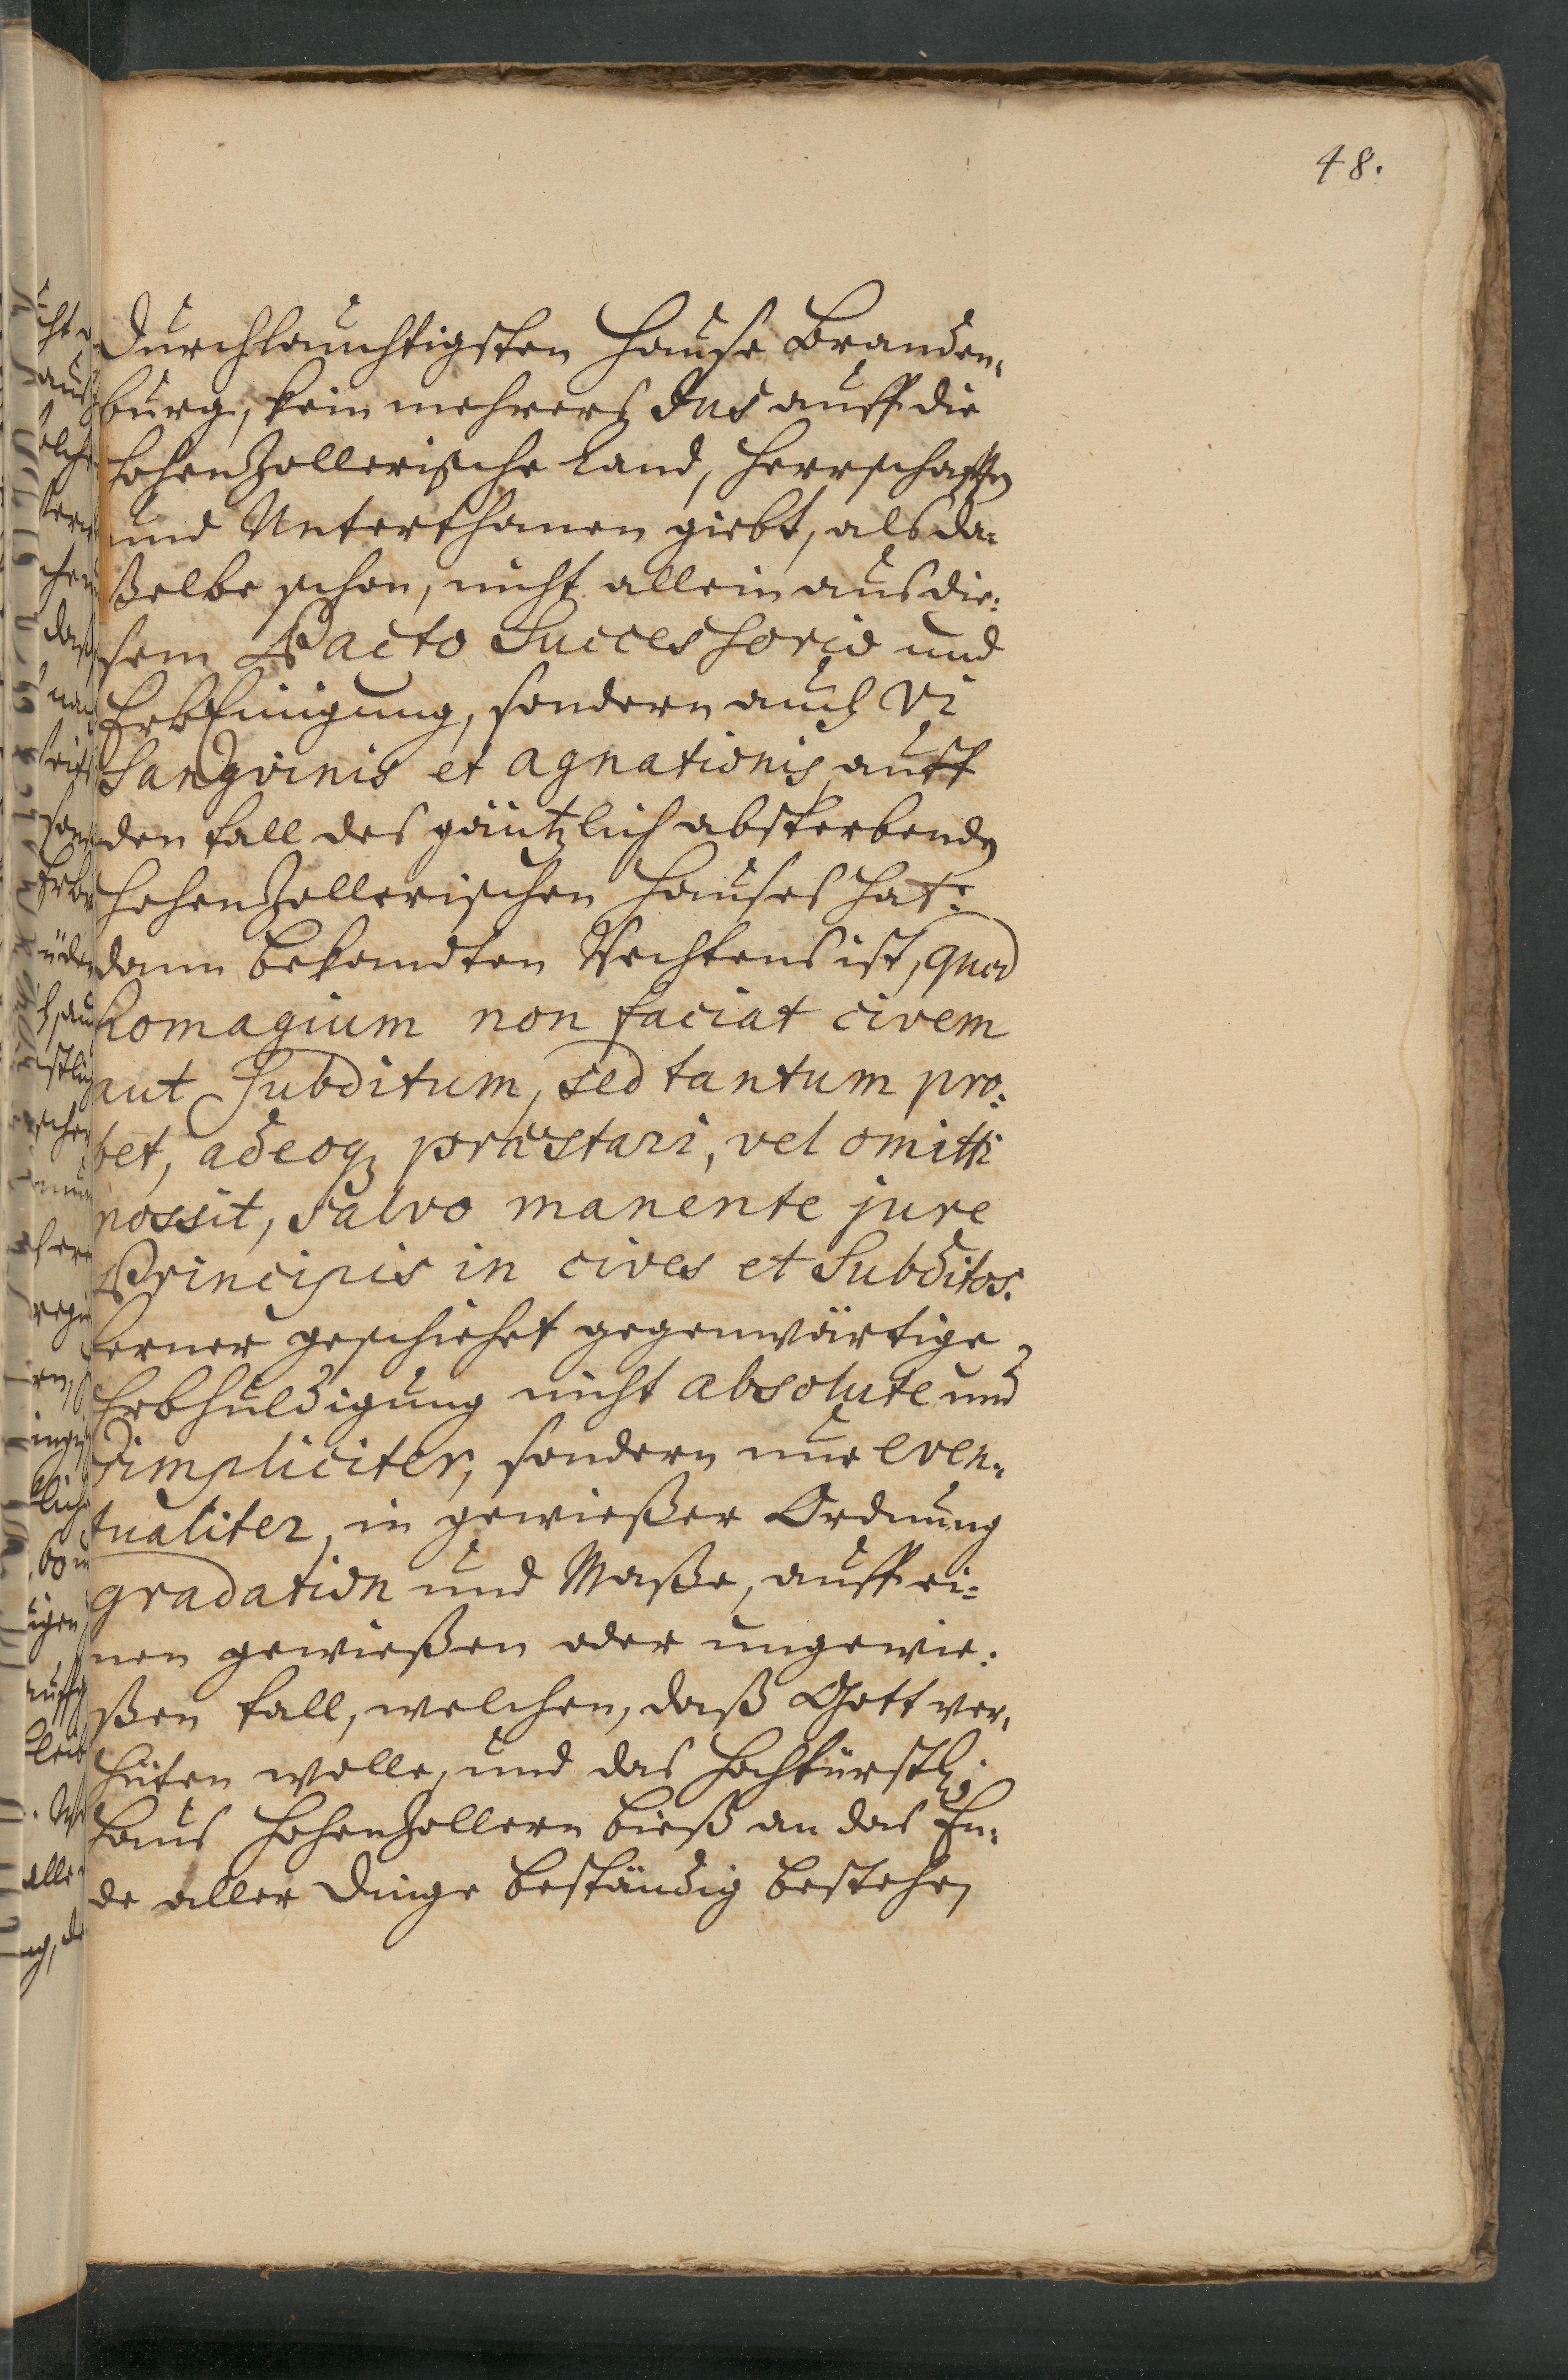 48.
Durchlauchtigsten Hause Branden-
burg, kein mehrers Jus auff die
HohenZollerische Land, Herrschafften
und Unterthanen giebt, als da-
ßelbe schon, nicht allein aus die-
sem Pacto Successorio und
ErbEinigung, sondern auch vi
Sangvinis et agnationis auff
den fall des gäntzlich absterbenden
HohenZollerischen Hauses hat:
dann bekandten Rechtens ist, quod
homagium non faciat civem
aut Subditum, sed tantum pro-
bet, adeoq; præstari, vel omitti
possit, salvo manente jure
Principis in cives et Subditos.
ferner geschiehet gegenwärtige
Erbhuldigung nicht absolute und
Simpliciter, sondern nur even-
tualiter, in gewießer Ordnung
gradation und Maße, auff ei-
nen gewießen oder ungewie-
ßen fall, welchen, daß Gott ver-
hüten wolle, und das Hochfürstl.
Haus HohenZollern bieß an das En-
de aller Dinge beständig bestehen